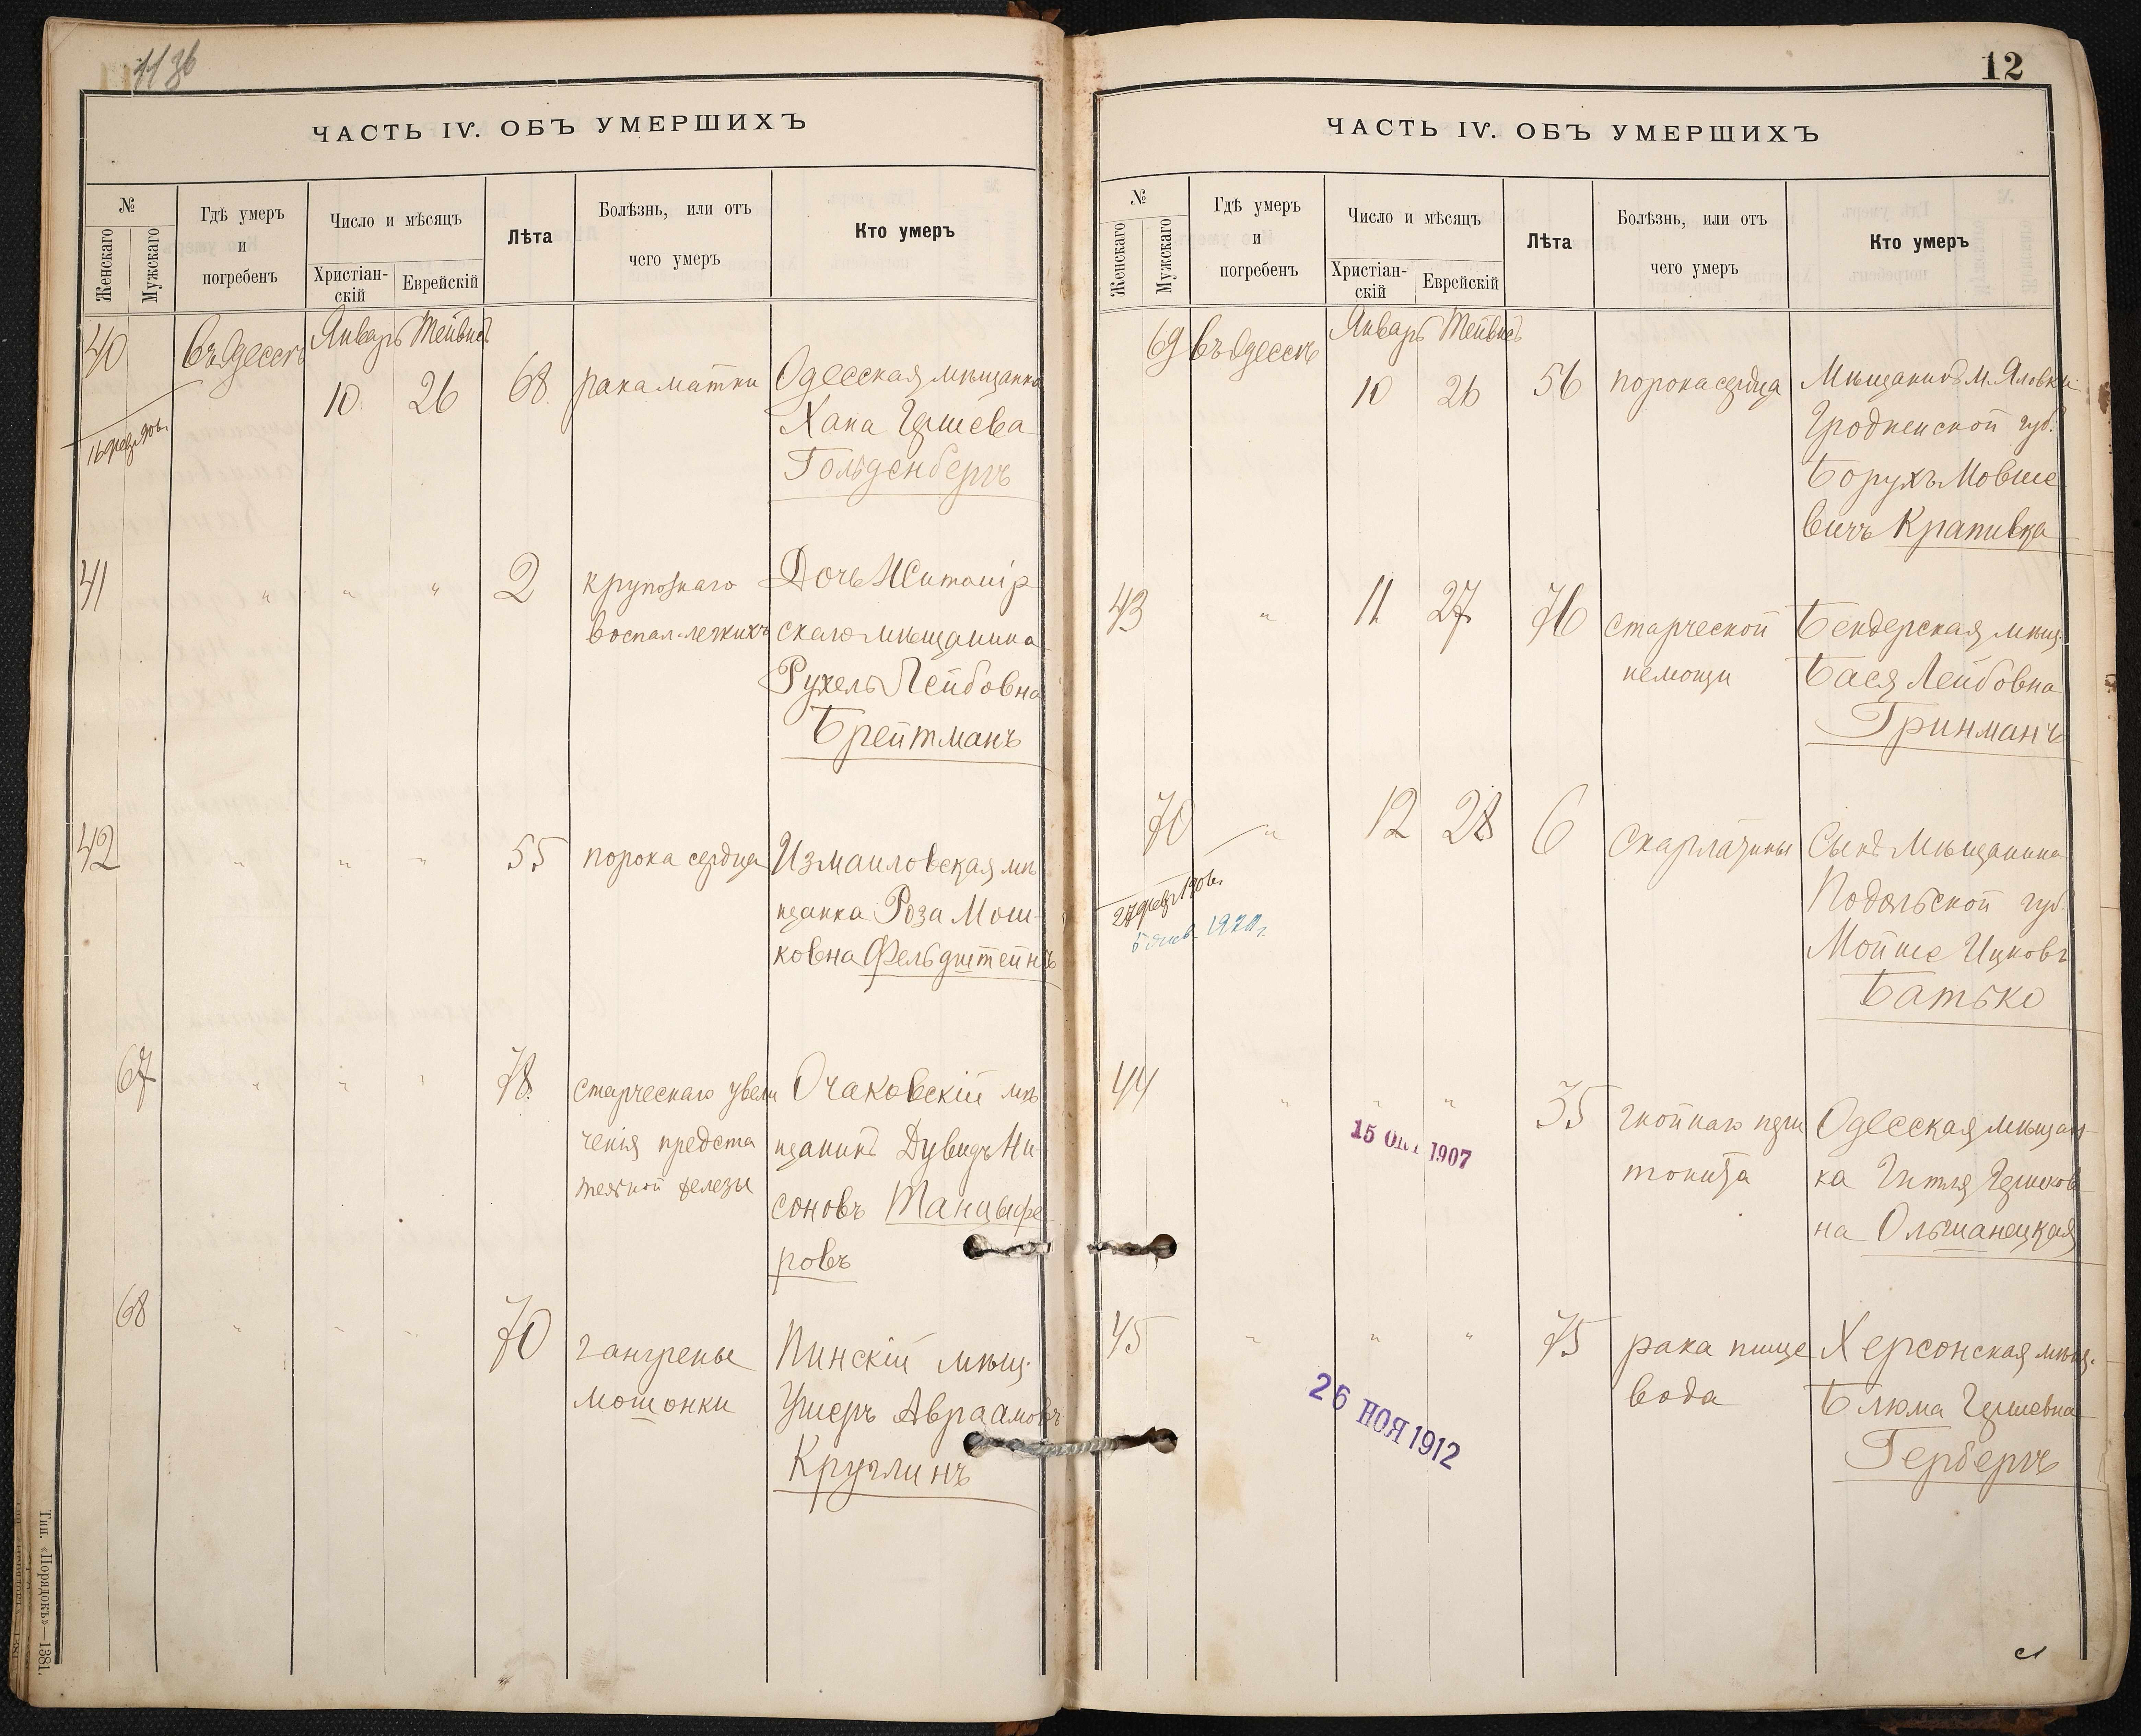 ЧАСТЬ IV. ОБЪ УМЕРШИХЪ
№
Женскаго
Мужскаго
Гдѣ умеръ
и
погребенъ
Число и мѣсяцъ
Христіан-
скій
Еврейскій
Лѣта
Болѣзнь, или отъ
чего умеръ
Кто умеръ
40
въ Одессѣ
Январь
Тейвисъ
10
26
68
рака матки
Одесская мѣщанка
Хана Гершева
Гольденбергъ
41
"
"
"
2
крупознаго
воспал. легкихъ
Дочь Житомір
скаго мѣщанина
Рухель Лейбовна
Брейтманъ
42
"
"
"
55
порока сердца
Измаиловская мѣ
щанка Роза Мош-
ковна Фельдштейнъ
67
"
"
"
78
старческаго увели
ченія предста
тельной железы
Очаковскій мѣ
щанинъ Дувидъ Ни-
соновъ Танцыфе
ровъ
68
"
"
"
70
гангрены
мошонки
Пинскій мѣщ.
Ушеръ Авраамовъ
Круглинъ
Тип. «Порядокъ»—1381.
12
ЧАСТЬ IV. ОБЪ УМЕРШИХЪ
№
Женскаго
Мужскаго
Гдѣ умеръ
и
погребенъ
Число и мѣсяцъ
Христіан-
скій
Еврейскій
Лѣта
Болѣзнь, или отъ
чего умеръ
Кто умеръ
69
въ Одессѣ
Январь
Тейвисъ
10
26
56
порока сердца
Мѣщанинъ м. Яловки
Гродненской губ.
Борухъ Мовше
вичъ Крапивка
43
"
11
27
76
старческой
немощи
Бендерская мѣщ.
Бася Лейбовна
Гринманъ
70
"
12
28
6
скарлатины
Сынъ мѣщанина
Подольской губ.
Мойше Ицковъ
Батько
44
"
"
"
35
гнойнаго пери
тонита
Одесская мѣщан-
ка Гитля Гершков
на Ольшанецкая
15 ОКТ 1907
45
"
"
"
75
рака пище
вода
Херсонская мѣщ.
Блюма Гершевна
Гербергъ
26 НОЯ 1912